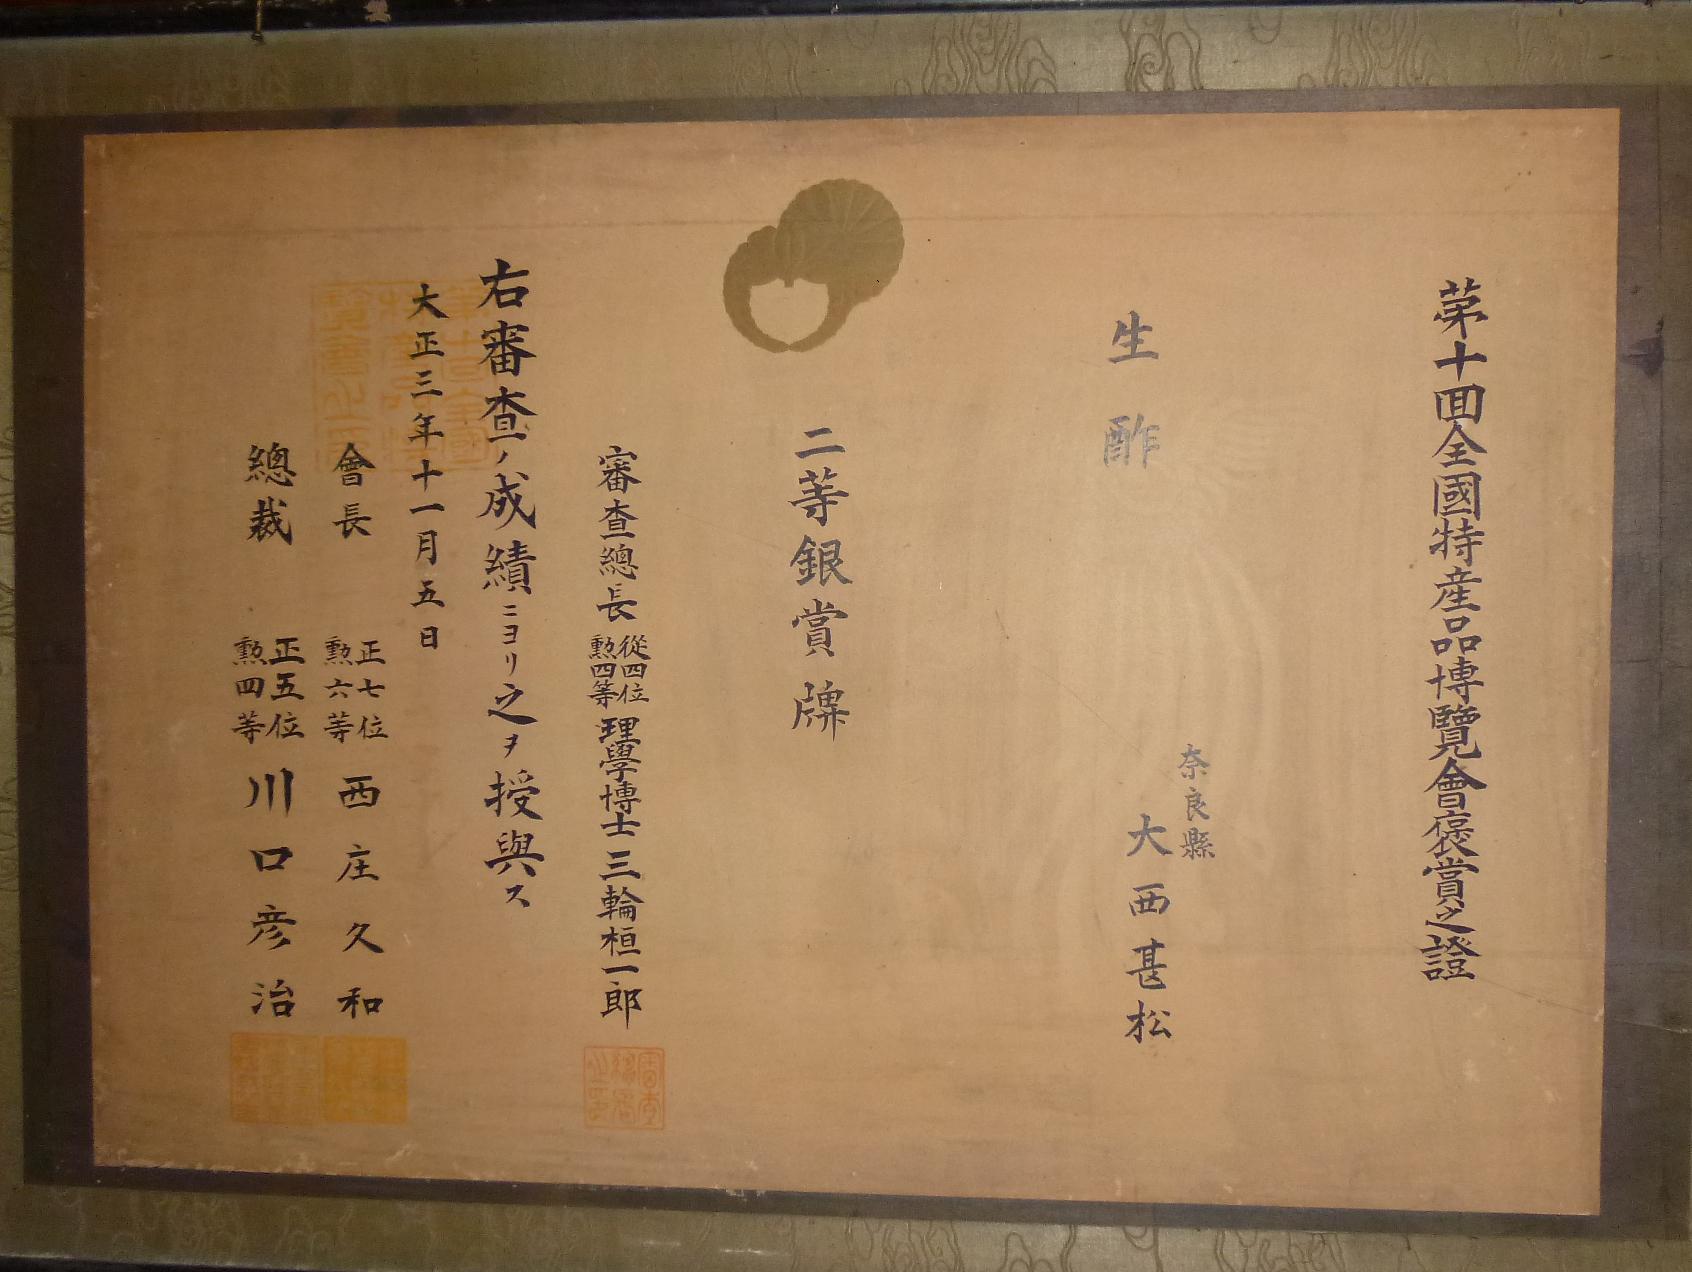 第十回全國特産品博覽會褒賞之證
奈良縣
大西甚松
生酢
二等銀賞牌
審査總長 從四位勲四等 理學博士 三輪桓一郎
右審査ノ成績ニヨリ之ヲ授與ス
大正三年十一月五日
會長 正七位勲六等 西庄久和
總裁 正五位勲四等 川口彦治